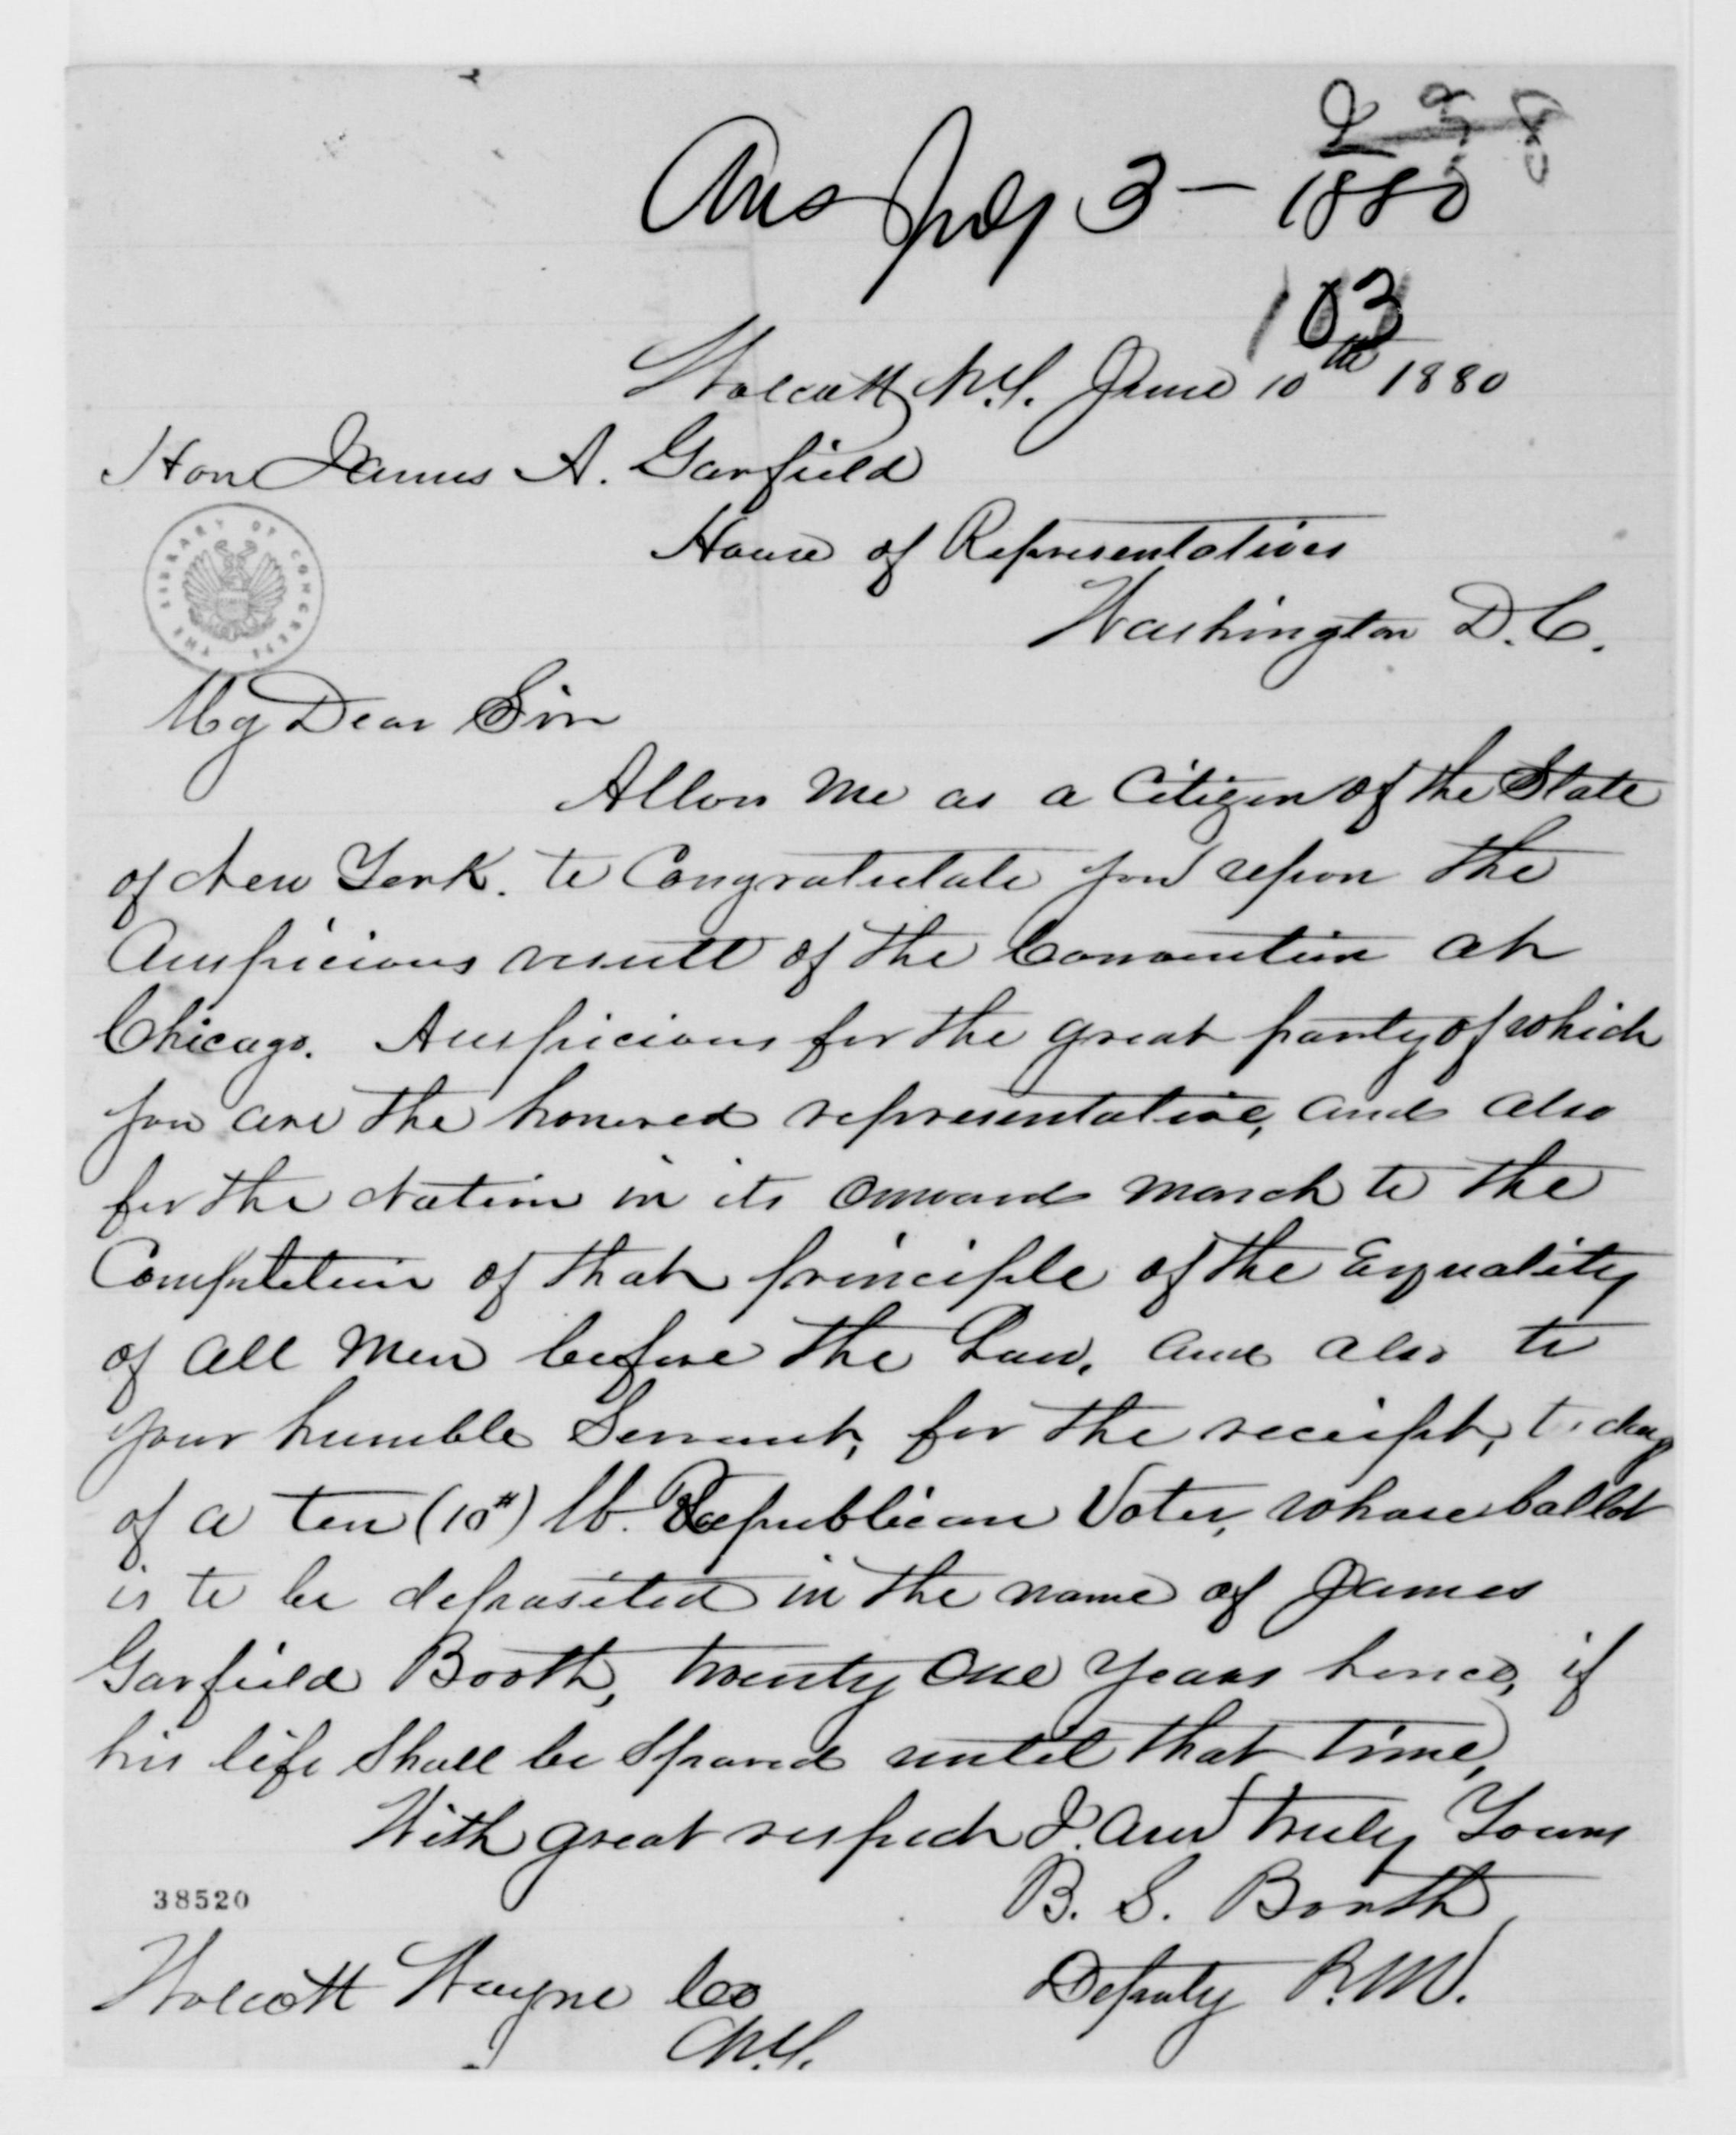 Ans July 3 — 1880
103
Wolcott N.Y. June 10th 1880
Hon James A. Garfield
House of Representatives
THE LIBRARY OF CONGRESS
Washington D.C.
My Dear Sir
Allow me as a Citizen of the State
of New York. to Congratulate you upon the
Auspicious result of the Convention at
Chicago. Auspicious for the great party of which
you are the honored representative, and also
for the Nation in its onward march to the
Completion of that principle of the Equality
of all Men before the Law, and also to
your humble Servant, for the receipt, to day
of a ten (10#) lb. Republican Voter, whose ballot
is to be deposited in the name of James
Garfield Booth, twenty one years hence, if
his life shall be spared until that time,
With great respect I am truly Yours
B. S. Booth
38520
Deputy P.M.
Wolcott Wayne Co
N.Y.